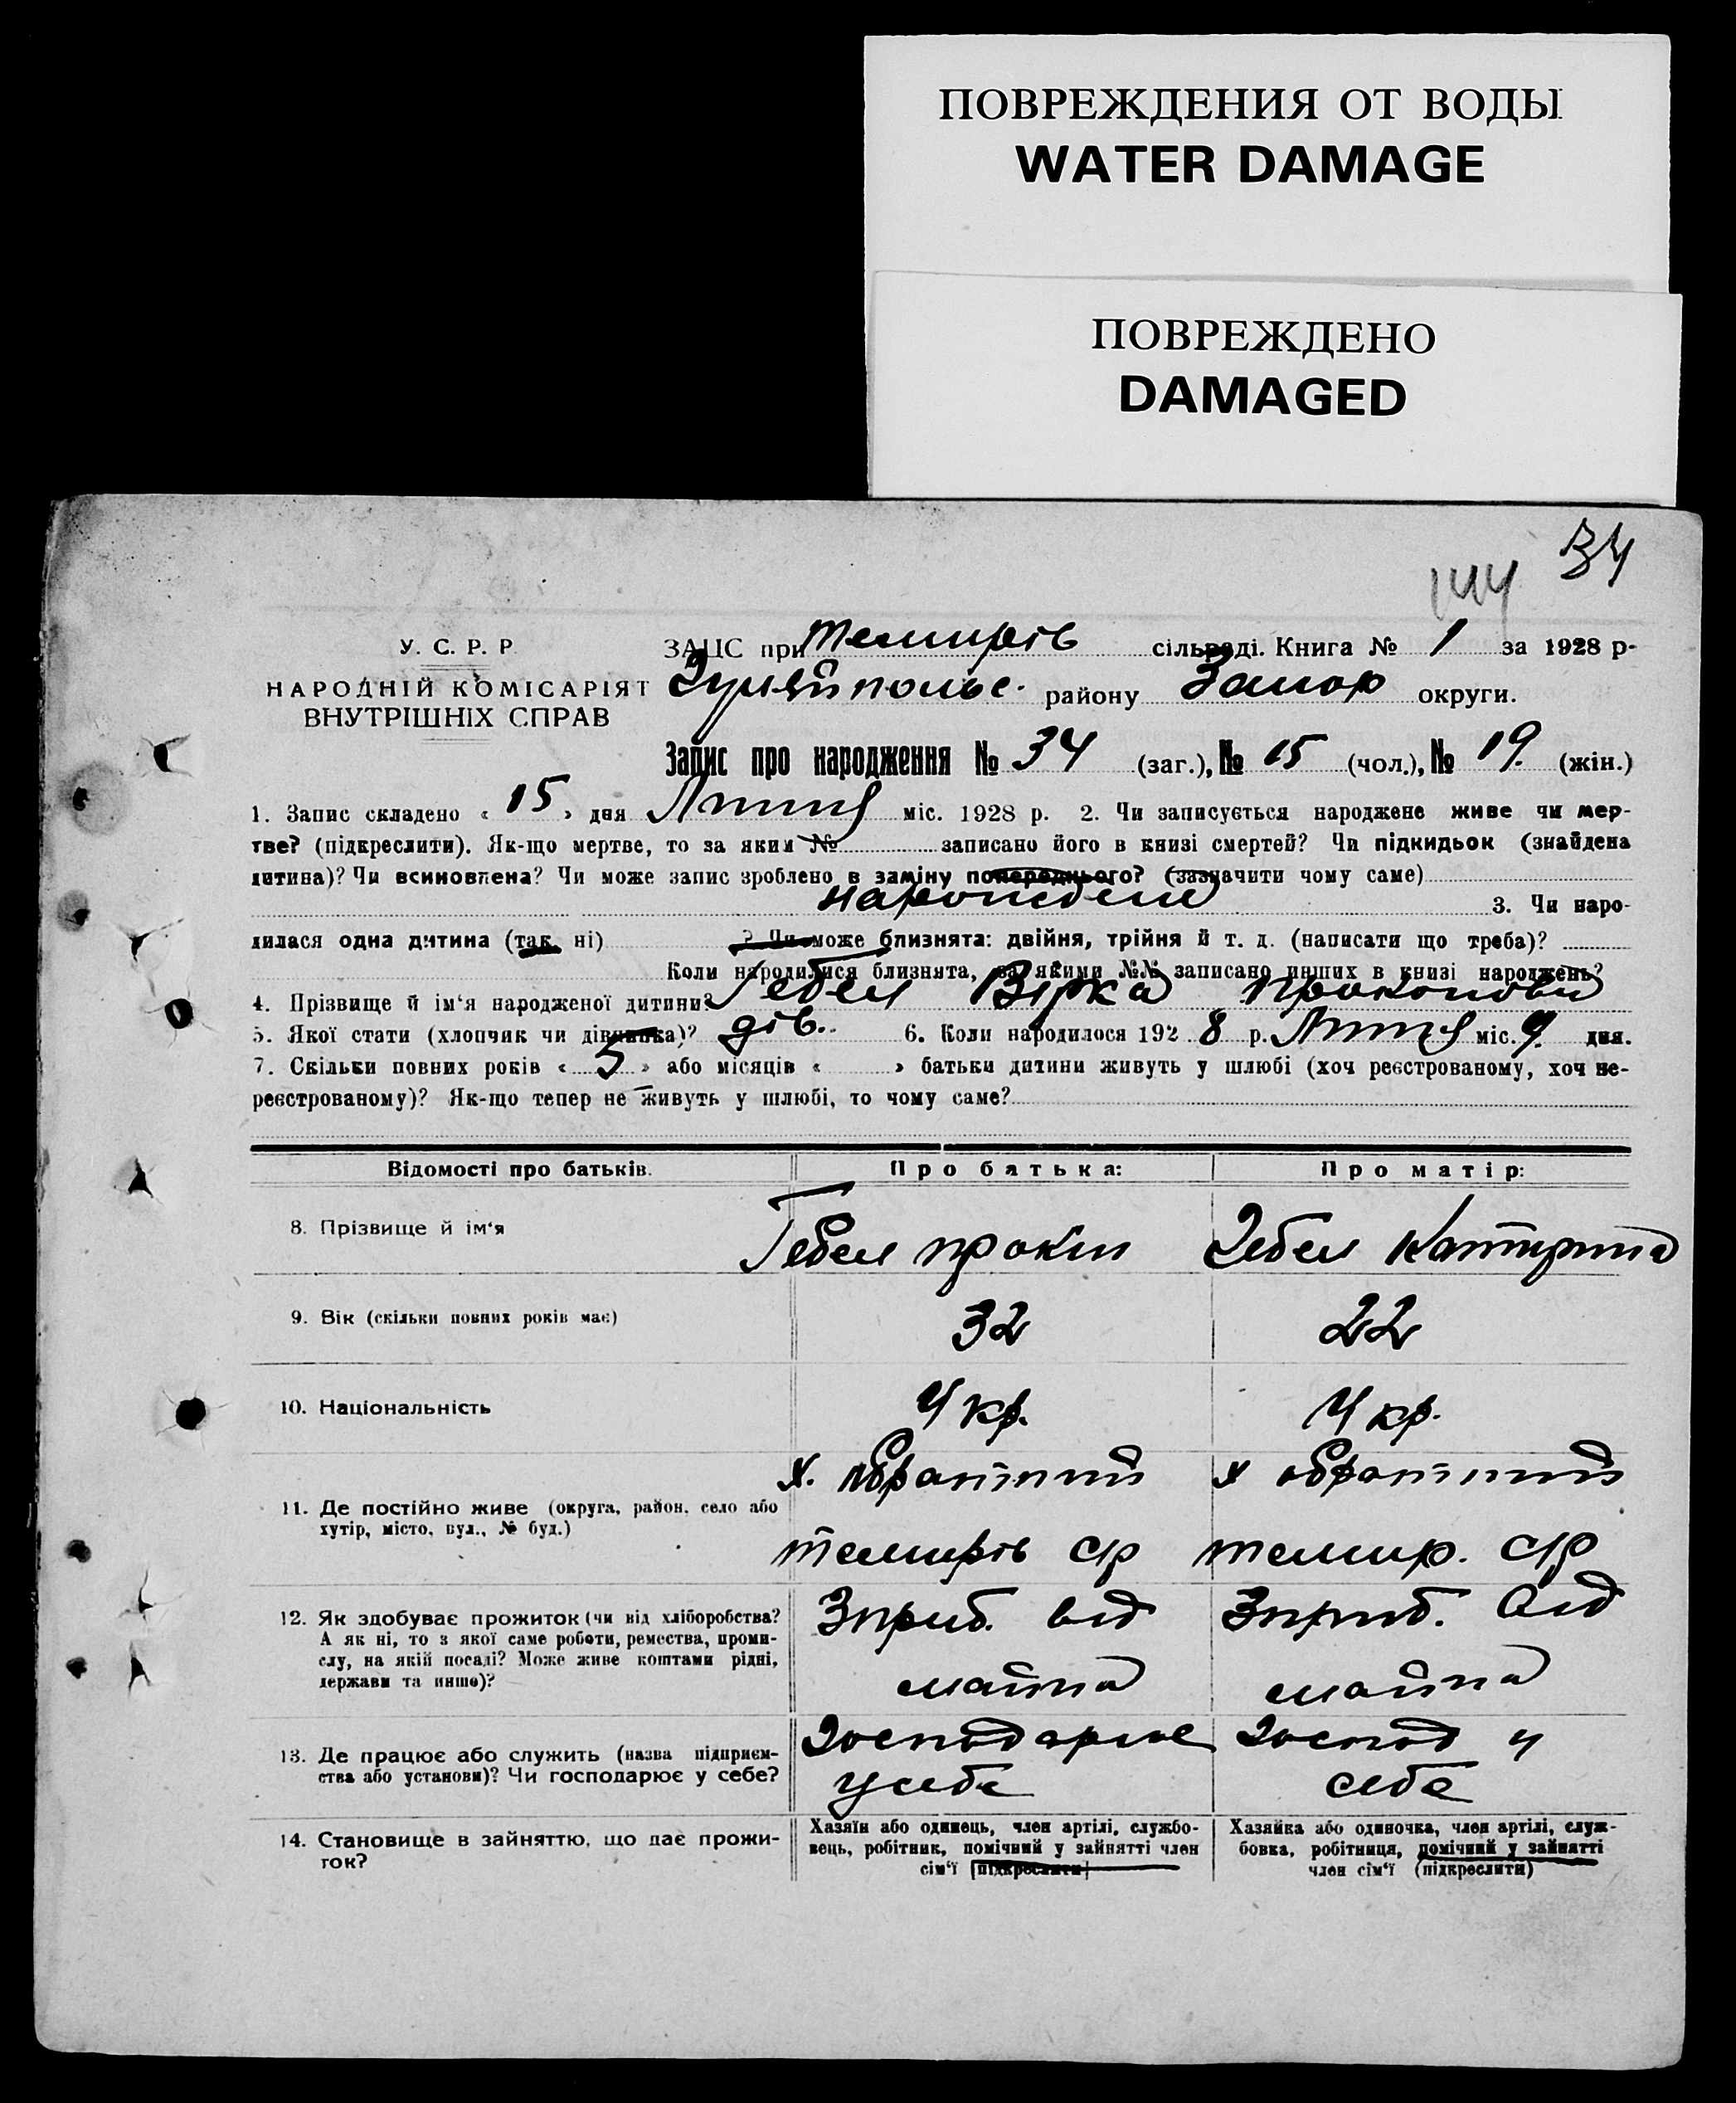 ПОВРЕЖДЕНИЯ ОТ ВОДЫ
WATER DAMAGE
ПОВРЕЖДЕНО
DAMAGED
34
144
У. С. Р. Р
НАРОДНІЙ КОМІСАРІЯТ
ВНУТРІШНІХ СПРАВ
ЗАЦС при Темирів сільраді. Книга № 1 за 1928 р-
Гуляйпольс. району Запор округи.
Запис про народження № 34 (заг.), № 15 (чол.), № 19. (жін.)
1. Запис складено « 15 » дня Липня міс. 1928 р. 2. Чи записується народжене живе чи мер-
тве? (підкреслити). Як-що мертве, то за яким № записано його в книзі смертей? Чи підкидьок (знайдена
дитина)? Чи всиновлена? Чи може запис зроблено в заміну попереднього? (зазначити чому саме)
народжене 3. Чи наро-
дилася одна дитина (так, ні) ? Чи може близнята: двійня, трійня й т. д. (написати що треба)?
Коли народилися близнята, за якими №№ записано инших в книзі народжень?
4. Прізвище й ім‘я народженої дитини? Гебел Вірка Прокопови
5. Якої стати (хлопчик чи дівчинка)? дів. 6. Коли народилося 192 8 р. Липня міс. 9. дня.
7. Скільки повних років « 5 » або місяців « » батьки дитини живуть у шлюбі (хоч реєстрованому, хоч не-
реєстрованому)? Як-що тепер не живуть у шлюбі, то чому саме?
Відомості про батьків. Про батька: Про матір:
8. Прізвище й ім‘я Гебел Прокіп Гебел Катирина
9. Вік (скільки повних років має) 32 22
10. Національність Укр. Укр.
х. обратний х обратний
11. Де постійно живе (округа, район, село або
хутір, місто, вул., № буд.)
темирів с/р темир. с/р
12. Як здобуває прожиток (чи від хліборобства?
А як ні, то з якої саме роботи, ремества, проми-
слу, на якій посаді? Може живе коштами рідні,
держави та инше)?
Зприб. від Зприб. від
майна майна
13. Де працює або служить (назва підприєм-
ства або установи)? Чи господарює у себе?
Господарює Господ у
у себе себе
14. Становище в зайняттю, що дає прожи-
ток?
Хазяїн або одинець, член артілі, службо-
вець, робітник, помічний у зайнятті член
сім‘ї (підкреслити)
Хазяйка або одиночка, член артілі, служ-
бовка, робітниця, помічний у зайнятті
член сім‘ї (підкреслити)